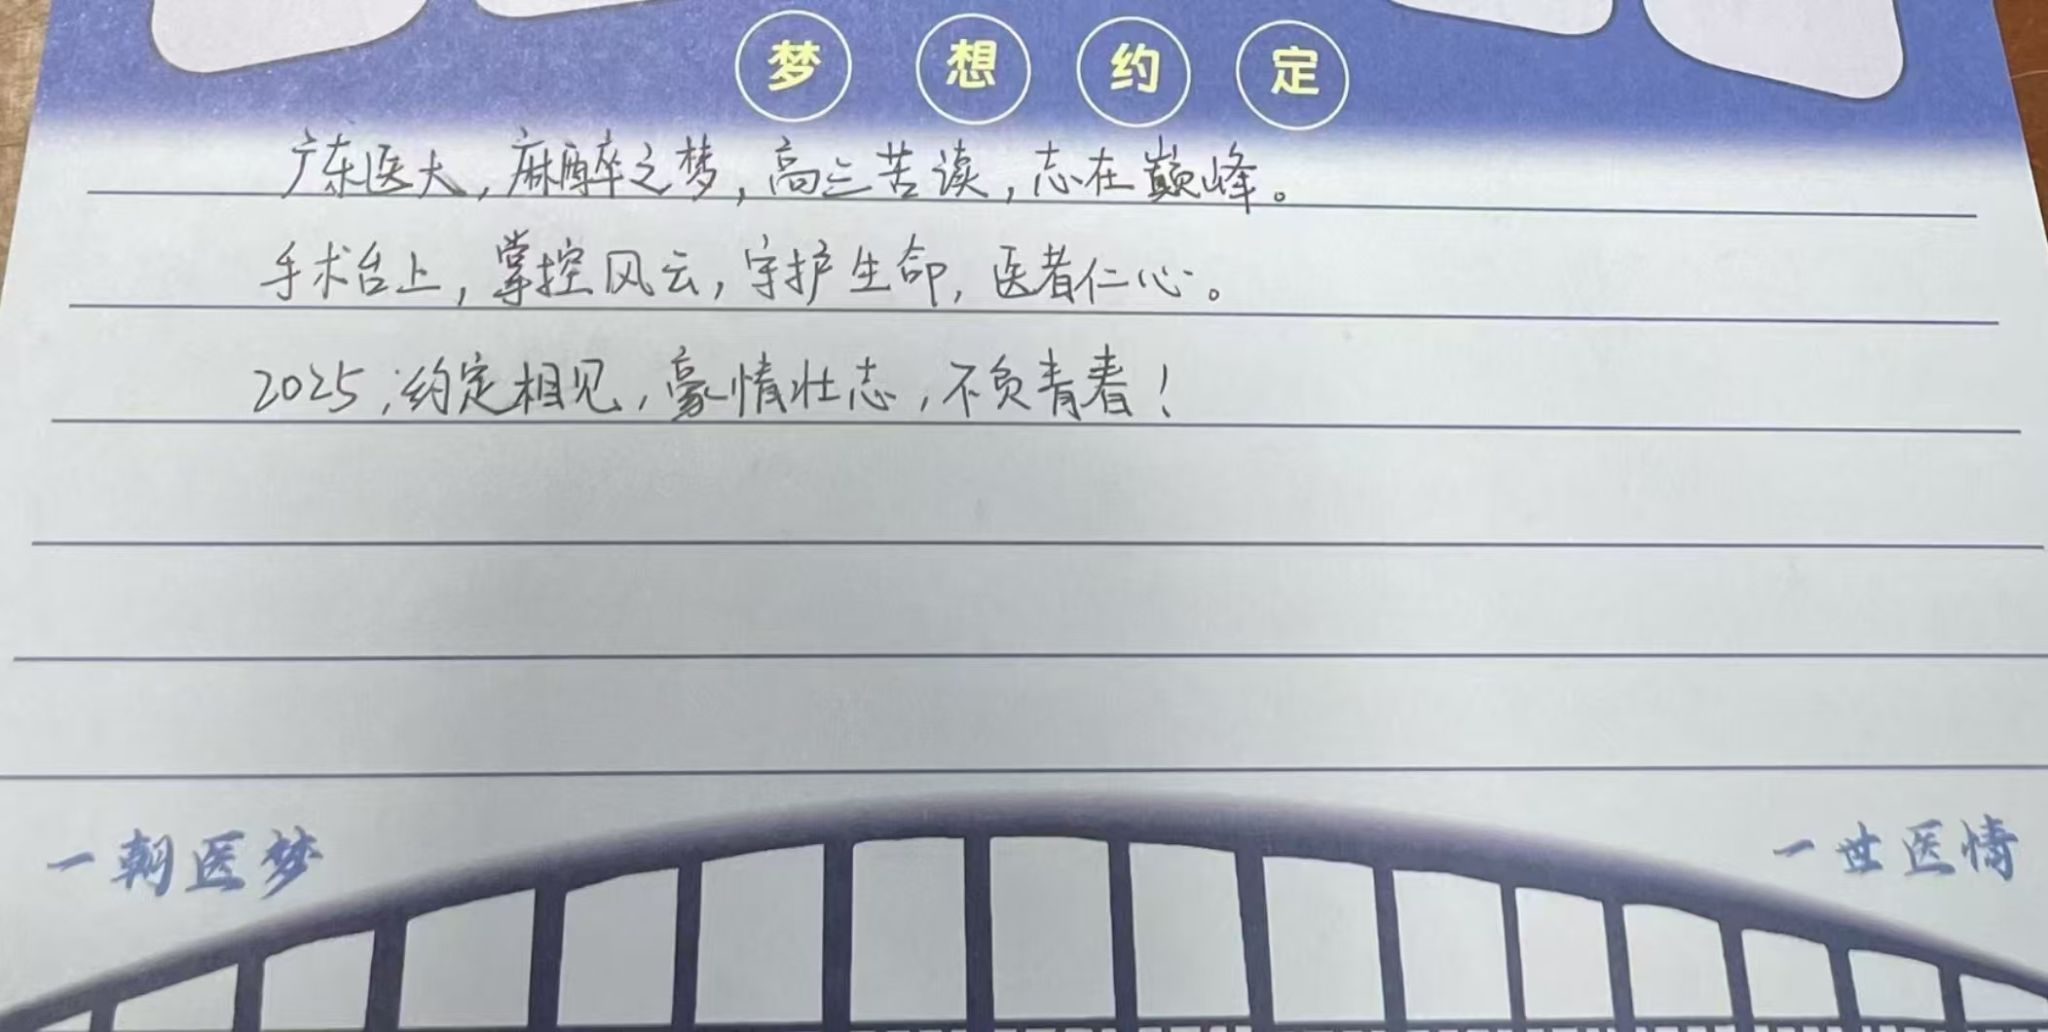 梦想约定
广东医大，麻醉之梦，高三苦读，志在巅峰。
手术台上，掌控风云，守护生命，医者仁心。
2025，约定相见，豪情壮志，不负青春！
一朝医梦
一世医情